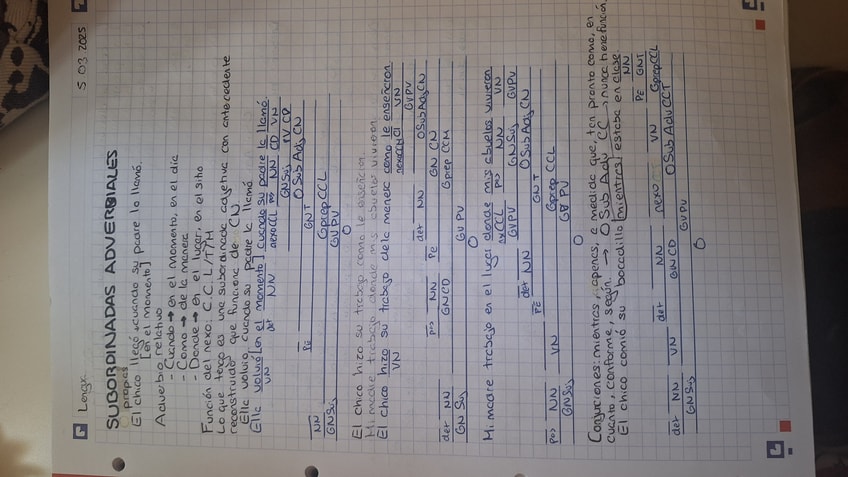 Lengua 5 03 2025
SUBORDINADAS ADVERBIALES
propias
El chico llegó cuando su padre lo llamó.
[en el momento]
Adverbio relativo
- Cuando → en el momento, en el día
- Como → de la manera
- Donde → en el lugar, en el sitio
Función del nexo: C.C. L/T/M
Lo que tengo es una subordinada adjetiva con antecedente
reconstruido que funciona de CN.
Ella volvió cuando su padre la llamó
Ella volvió [en el momento] cuando su padre la llamó
VN det NN nexoCCL pos NN CD VN
GNSuj PV CP
O Sub Adj CN
NN Pe GNT
GNSuj GprepCCL
GVPV
O
El chico hizo su trabajo como le enseñaron
Mi madre trabaja donde mis abuelos vivieron
El chico hizo su trabajo de la manera como le enseñaron
VN nexoCCM CI VN
GVPV
det NN pos NN Pe det NN OSubAdjCN
GNSuj GN/CD GN CN
Gprep CCM
GVPV
O
Mi madre trabaja en el lugar donde mis abuelos vivieron
CCL pos NN VN
GVPV GNSuj GVPV
pos NN VN Pe det NN O Sub Adj CN
GNSuj GNT
Gprep CCL
GVPV
O
Conjunciones: mientras, apenas, a medida que, tan pronto como, en
cuanto, conforme, según. → O Sub Adv CC → nunca tiene función
El chico comió su bocadillo [mientras] estaba en clase.
NN
Pe GNT
det NN VN det NN nexo VN GprepCCL
GNSuj GNCD O Sub Adv CCT
GVPV
O